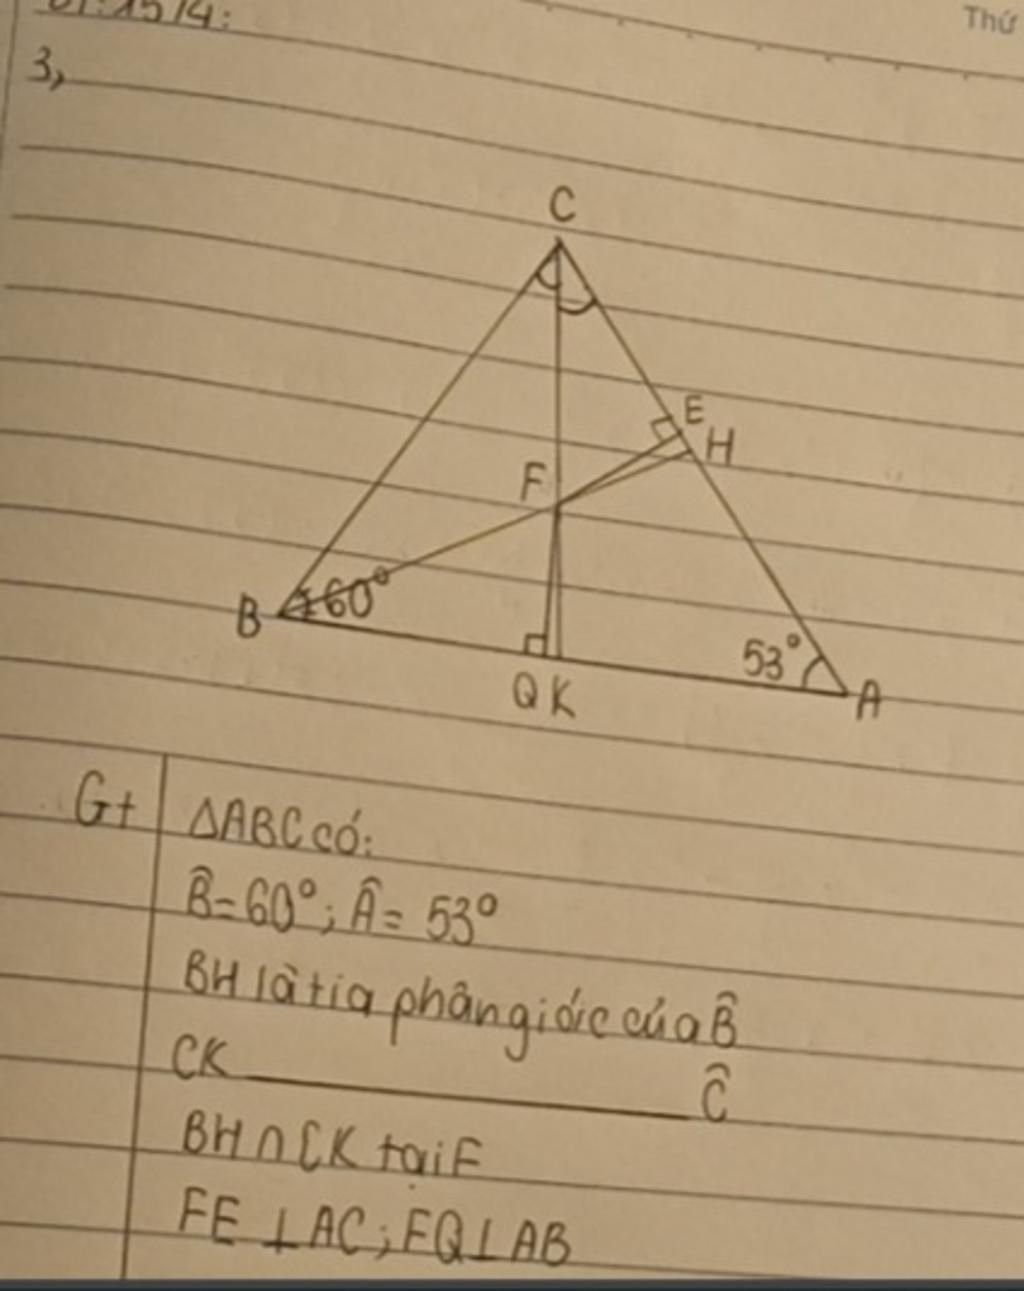 Thứ
3,
C
E
H
F
B
60°
53°
Q K
A
Gt
ΔABC có:
B̂ = 60°; Â = 53°
BH là tia phân giác của B̂
CK ———————— Ĉ
BH ∩ CK tại F
FE ⊥ AC; FQ ⊥ AB